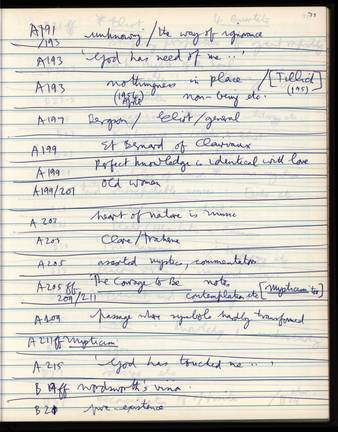 A191 unknowing / the way of ignorance
/193
A193 'God has need of me ..'
A193 nothingness in place / [Tillich]
(1956) non-being etc. (195)
A197 Bergson / Eliot / general
A199 St Bernard of Clairvaux
A199 Perfect knowledge is identical with love
A199/201 Old woman
A 203 heart of nature is music
A203 Clare / Traherne
A205 assorted mystic, commentators
A205 ff 'The Courage to Be notes
209/211 contemplation etc [Mysticism to]
A209 passage where symbols hardly transformed
A 211ff Mysticism
A 215 'God has touched me ..'
B 19ff Wordsworth's vision
B 21 pre-existence